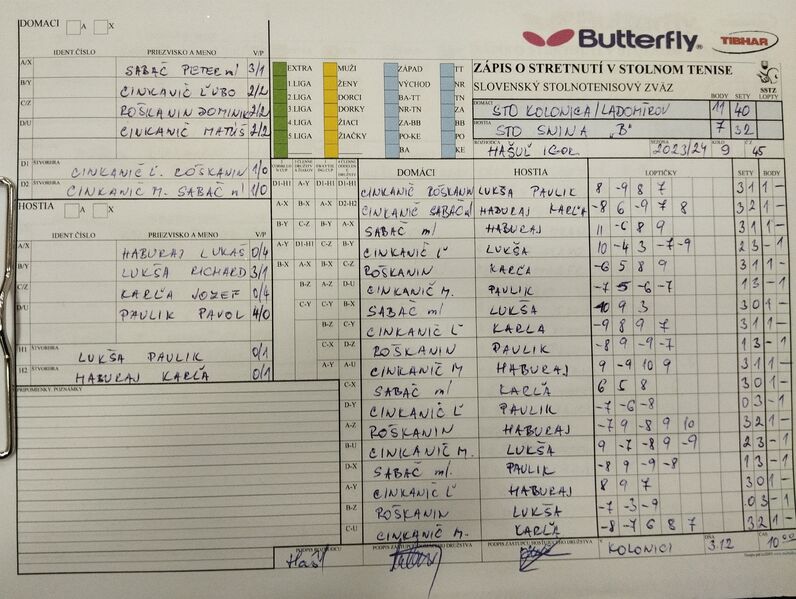 DOMACI A X
IDENT.ČÍSLO PRIEZVISKO A MENO V/P
A/X SABAČ PETER ml 3/1
B/Y CINKANIČ ĽUBO 2/2
C/Z ROŠKANIN DOMINIK 2/2
D/U CINKANIČ MATÚŠ 2/2
D1 ŠTVORHRA CINKANIČ Ľ. ROŠKANIN 1/0
D2 ŠTVORHRA CINKANIČ M. SABAČ ml 1/0
HOSTIA A X
IDENT.ČÍSLO PRIEZVISKO A MENO V/P
A/X HABURAJ LUKÁŠ 0/4
B/Y LUKŠA RICHARD 3/1
C/Z KARĽA JOZEF 0/4
D/U PAULIK PAVOL 4/0
H1 ŠTVORHRA LUKŠA PAULIK 0/1
H2 ŠTVORHRA HABURAJ KARĽA 0/1
PRIPOMIENKY, POZNÁMKY
EXTRA MUŽI ZÁPAD TT
1.LIGA ŽENY VÝCHOD NR
2.LIGA DORCI BA-TT TN
3.LIGA DORKY NR-TN ZA
4.LIGA ŽIACI ZA-BB BB
5.LIGA ŽIAČKY PO-KE PO
KE
Butterfly
TIBHAR
ZÁPIS O STRETNUTÍ V STOLNOM TENISE
SLOVENSKÝ STOLNOTENISOVÝ ZVÄZ
SSTZ
BODY SETY LOPTY
DOMÁCI STO KOLONICA/LADOMÍROV 11 40
HOSTIA STO SNINA „B" 7 32
ROZHODCA HAŠUĽ IGOR SEZÓNA 2023/24 KOLO 9 Č.Z. 45
DOMÁCI HOSTIA LOPTIČKY SETY BODY
D1-H1 A-Y D1-H1 D1-H1 CINKANIČ ROŠKANIN LUKŠA PAULIK 8 -9 8 7 3 1 1 -
A-X B-X A-X D2-H2 CINKANIČ SABAČ ml HABURAJ KARĽA -8 6 -9 7 8 3 2 1 -
B-Y C-Z B-Y A-X SABAČ ml HABURAJ 11 -6 8 9 3 1 1 -
A-Y D1-H1 C-Z B-Y CINKANIČ Ľ LUKŠA 10 -4 3 -7 -9 2 3 - 1
B-X A-X B-X C-Z ROŠKANIN KARĽA -6 5 8 9 3 1 1 -
B-Z A-Z D-U CINKANIČ M. PAULIK -7 5 -6 -7 1 3 - 1
C-Y B-Y SABAČ ml LUKŠA 10 9 3 3 0 1 -
B-Z C-Y CINKANIČ Ľ KARĽA -9 8 9 7 3 1 1 -
C-X D-Z ROŠKANIN PAULIK -8 9 -9 -7 1 3 - 1
A-Y A-U CINKANIČ M HABURAJ 9 -9 10 9 3 1 1 -
C-X SABAČ ml KARĽA 6 5 8 3 0 1 -
D-Y CINKANIČ Ľ PAULIK -7 -6 -8 0 3 - 1
A-Z ROŠKANIN HABURAJ -7 9 -8 9 10 3 2 1 -
B-U CINKANIČ M. LUKŠA 9 -7 -8 9 -9 2 3 - 1
D-X SABAČ ml. PAULIK -8 9 -9 -8 1 3 - 1
A-Y CINKANIČ Ľ HABURAJ 8 9 7 3 0 1 -
B-Z ROŠKANIN LUKŠA -7 -3 -9 0 3 - 1
C-U CINKANIČ M. KARĽA -8 -7 6 8 7 3 2 1 -
PODPIS ROZHODCU PODPIS ZÁSTUPCU DOMÁCEHO DRUŽSTVA PODPIS ZÁSTUPCU HOSŤUJÚCEHO DRUŽSTVA V KOLONICI DŇA 3.12 ČAS 10 00